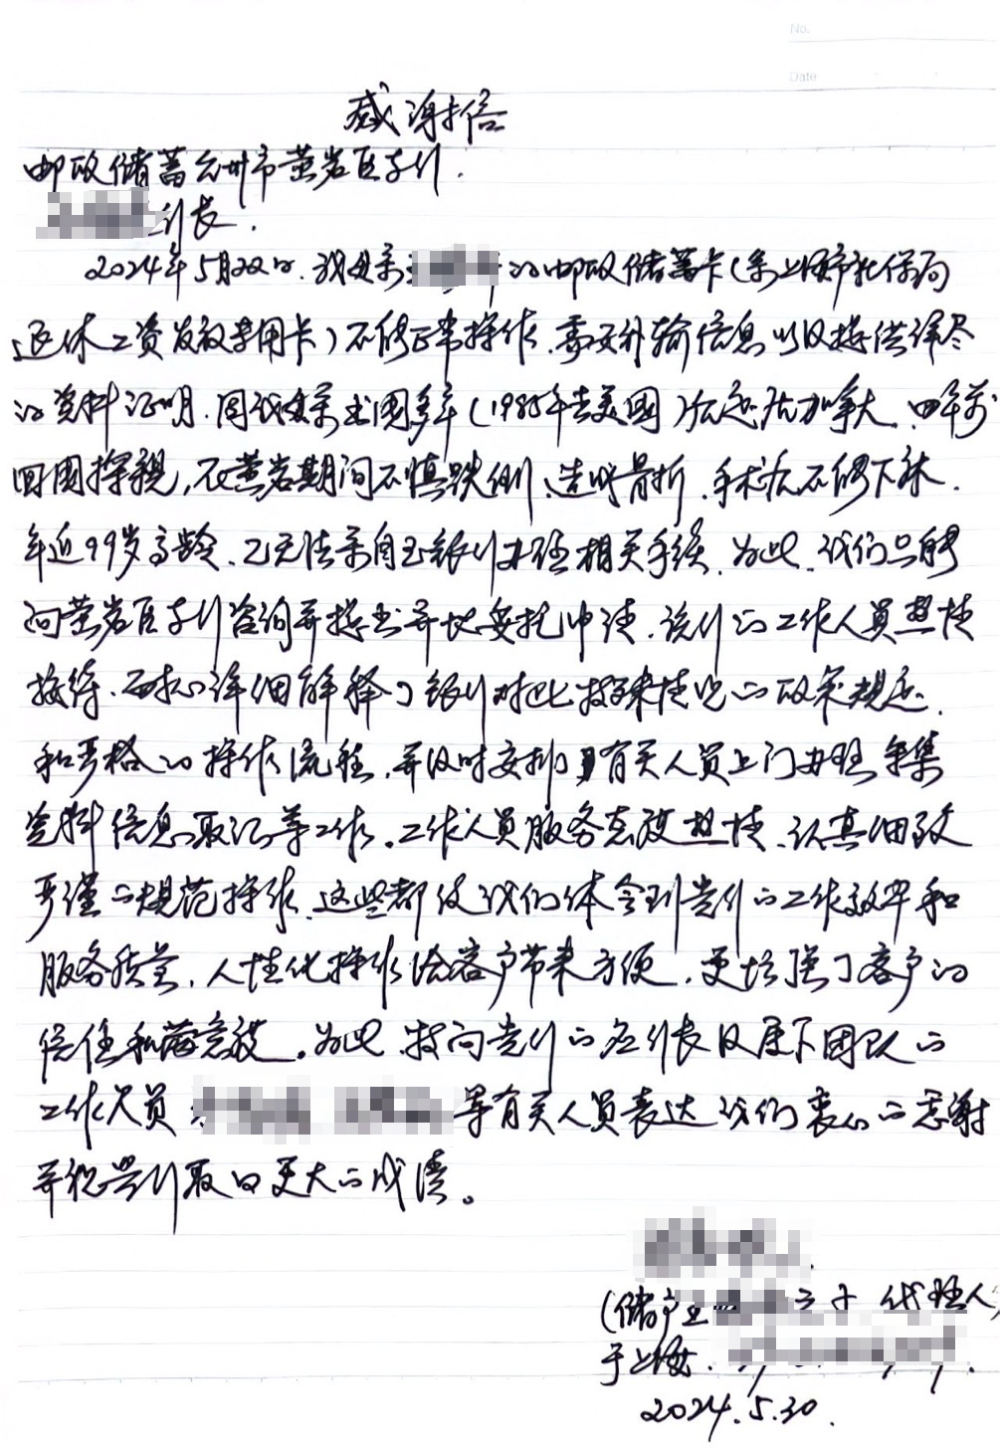 No.
Date
感谢信
邮政储蓄台州市黄岩区支行.
行长.
2024年5月22日.我母亲的邮政储蓄卡(系上海市社保局
退休工资发放专用卡)不能正常操作.需要补输信息以及提供详尽
的资料证明.因我母亲出国多年(1985年去美国)后定居加拿大.四年前
回国探親,在黄岩期间不慎跌倒、造成骨折.手术后不能下床.
年近99岁高龄.已无法亲自至银行办理相关手续.为此.我们只能
向黄岩区支行咨询并提出异地委托申请.该行的工作人员热情
接待.耐心详细解释了银行对此特殊情况的政策规定.
和严格的操作流程,并及时安排有关人员上门办理采集
资料信息取证等工作。工作人员服务态度热情、认真细致
严谨的规范操作.这些都使我们体会到贵行的工作效率和
服务质量,人性化操作给客户带来方便.更增强了客户的
信任和满意度。为此.特向贵行的行长及属下团队的
工作人员 等有关人员表达我们衷心的感谢
并祝贵行取的更大的成绩。
(储户王 之子 代理人)
于上海.
2024.5.30.